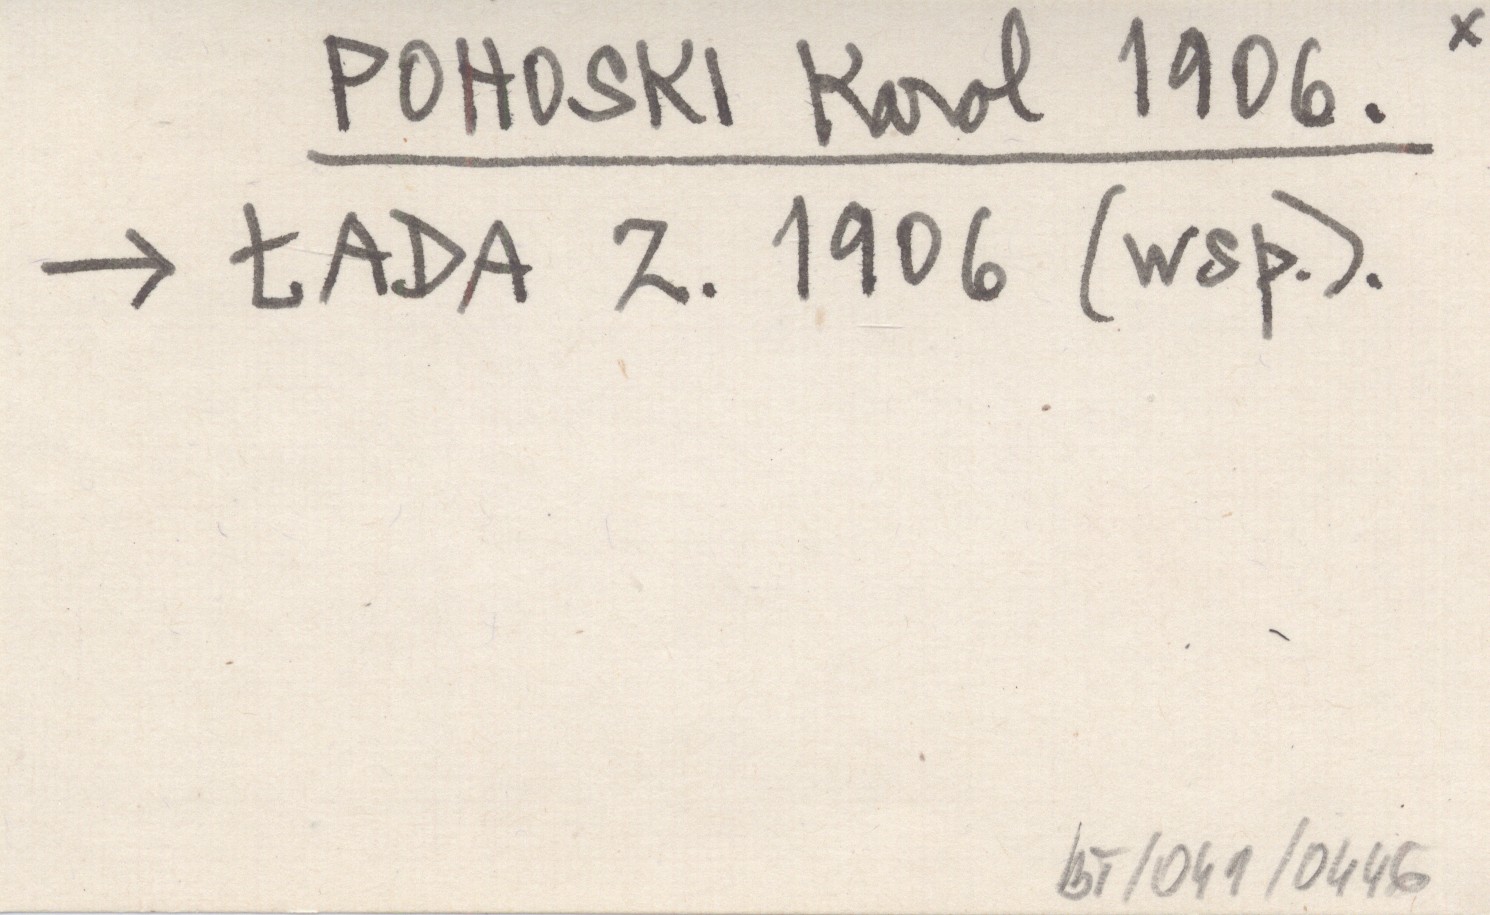 POHOSKI Karol 1906. x
→ ŁADA Z. 1906 (wsp.).
bT/041/0446